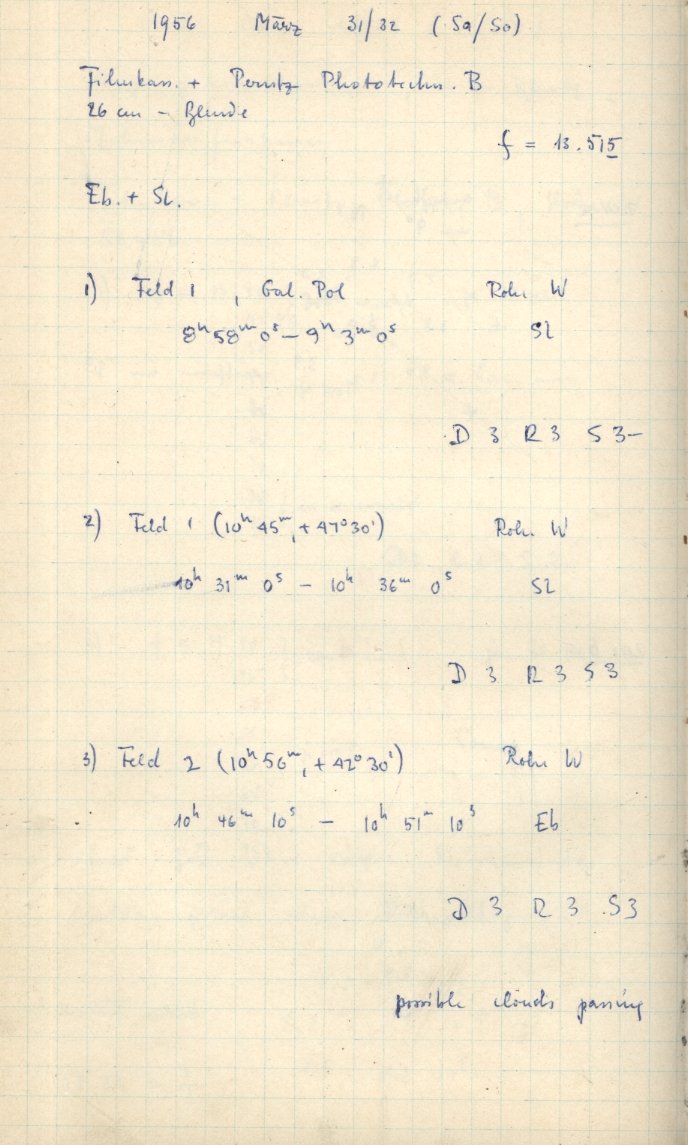 1956 März 31/32 (Sa/So)
Filmkass. + Perutz Phototechn. B
26 cm - Blende
f = 13.515
Eb. + SL.
1) Feld 1 , Gal. Pol Rohr W
8ʰ 58ᵐ 0ˢ – 9ʰ 3ᵐ 0ˢ SL
D 3 R 3 S 3–
2) Feld 1 (10ʰ 45ᵐ, +47° 30') Rohr W
10ʰ 31ᵐ 0ˢ – 10ʰ 36ᵐ 0ˢ SL
D 3 R 3 S 3
3) Feld 2 (10ʰ 56ᵐ, +42° 30') Rohr W
10ʰ 46ᵐ 10ˢ – 10ʰ 51ᵐ 10ˢ Eb
D 3 R 3 S3
possible clouds passing